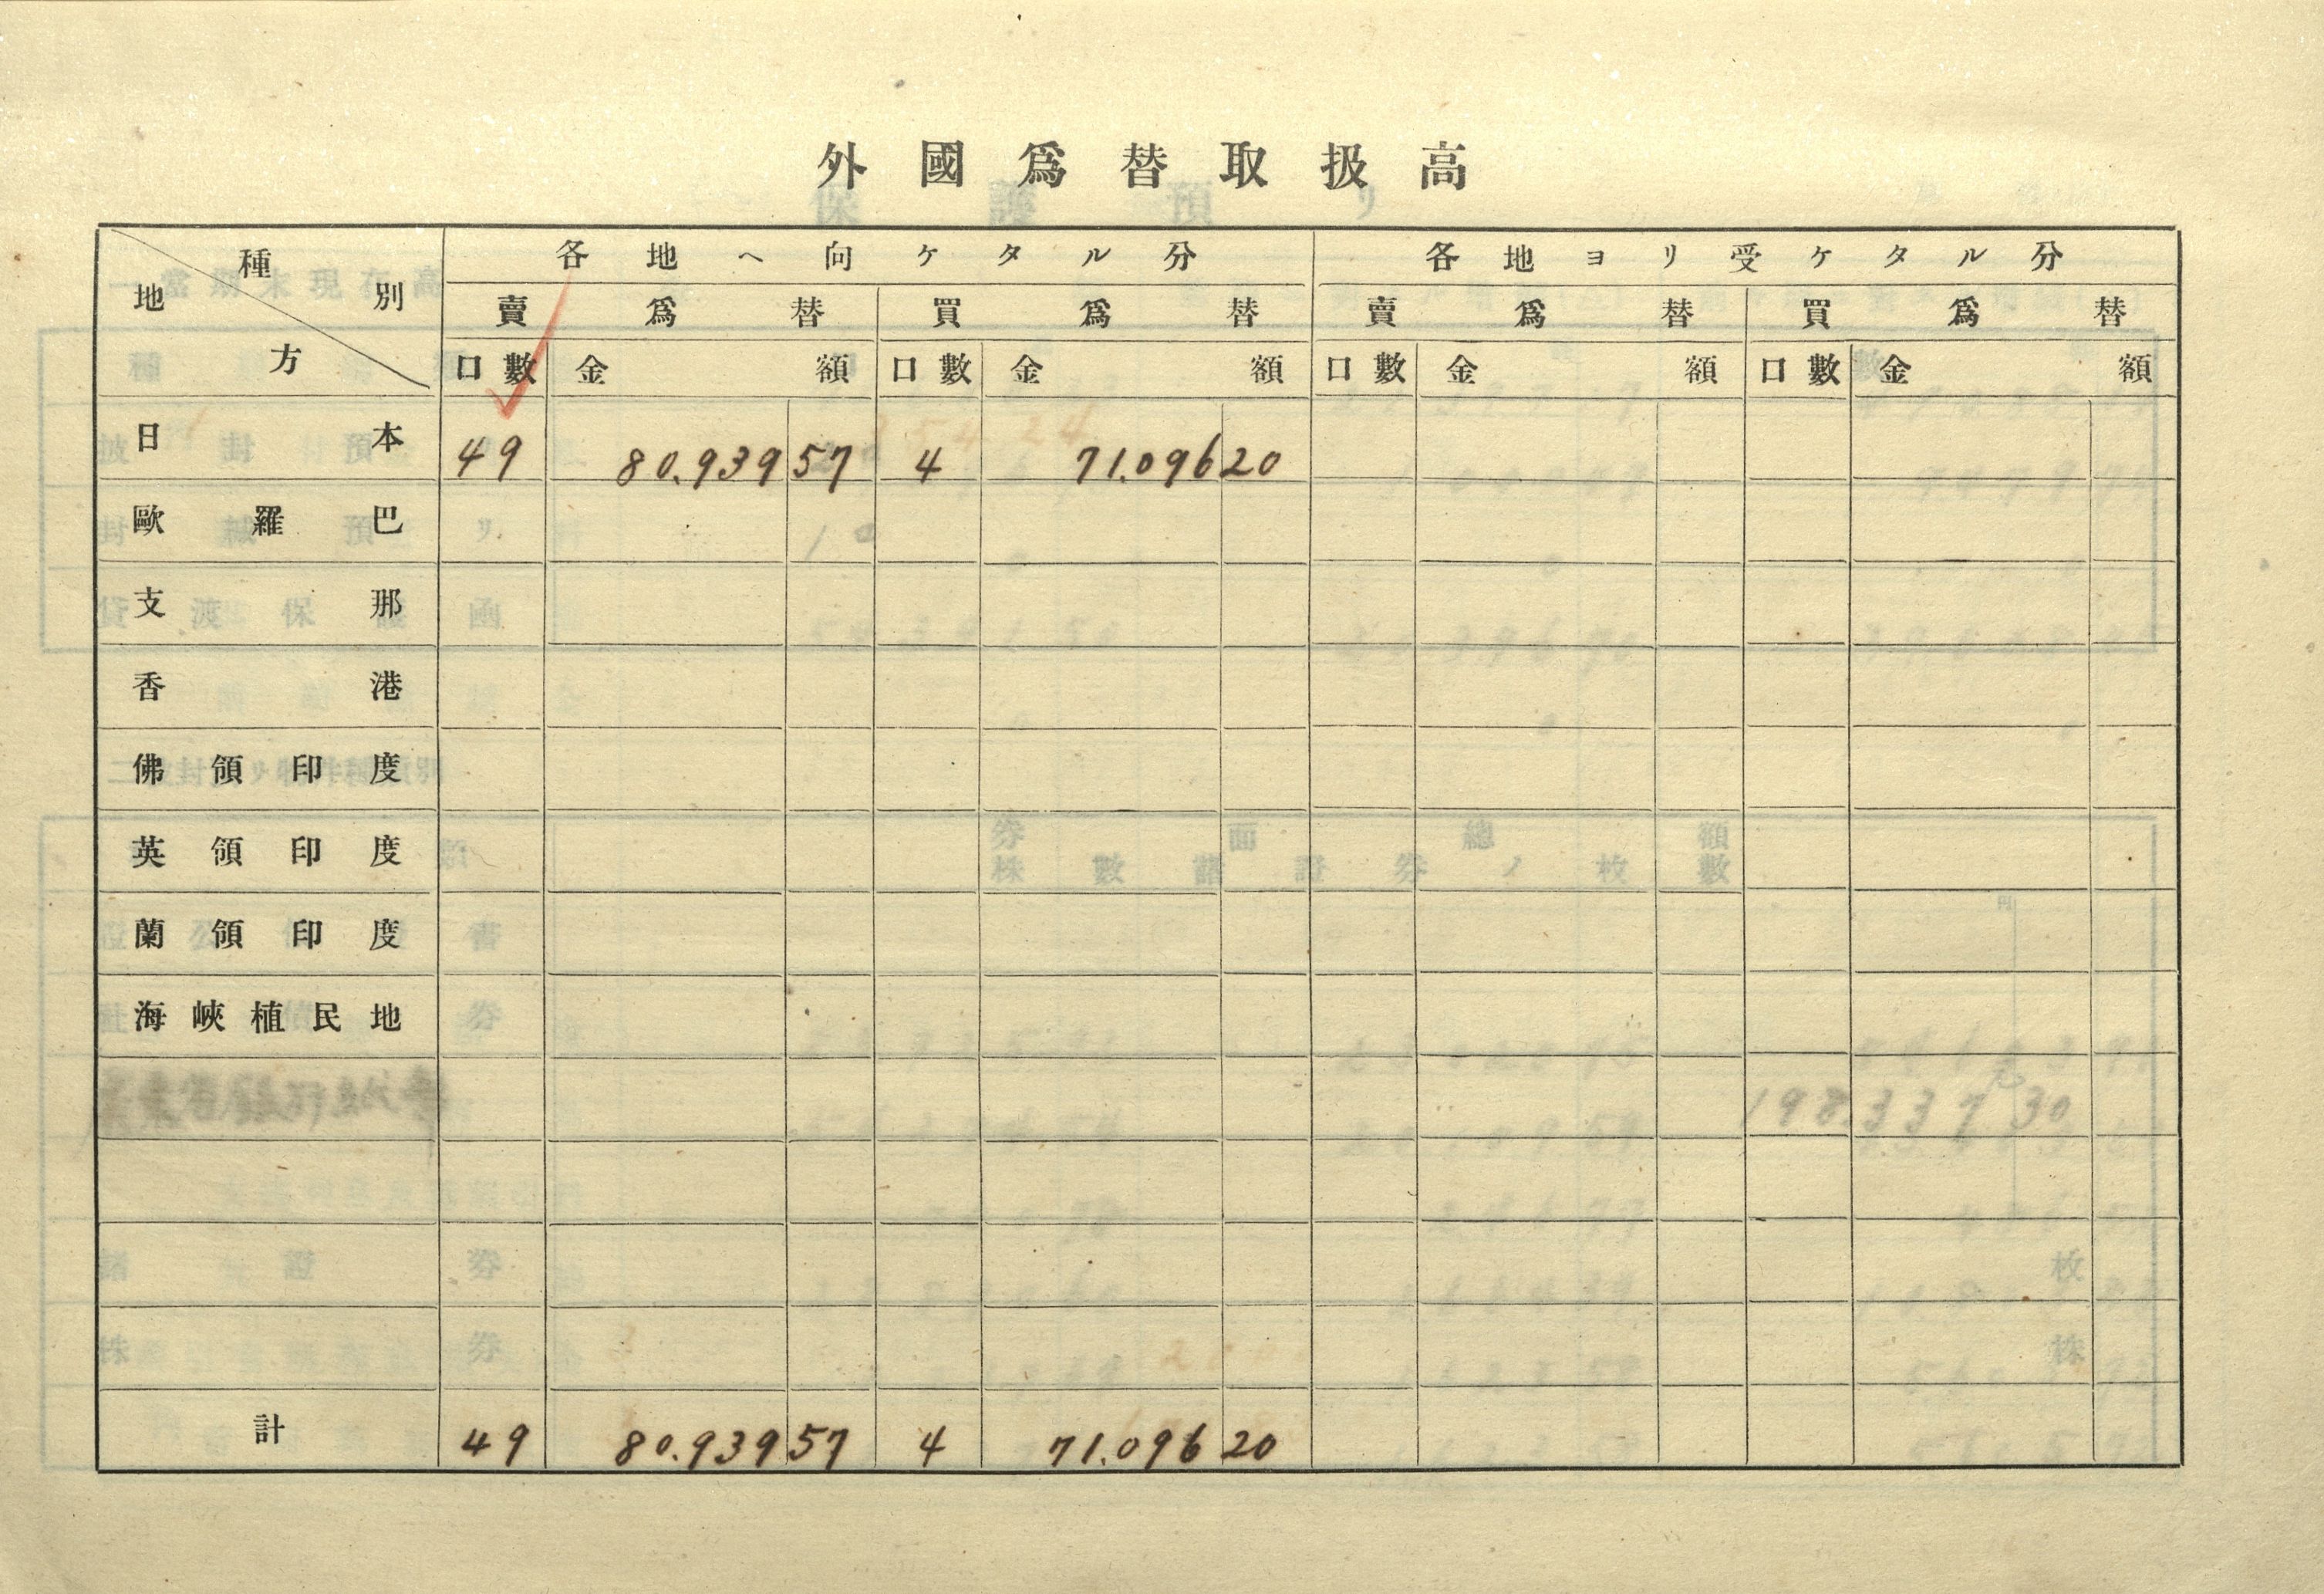 外國爲替取扱高
種別 地方
各地ヘ向ケタル分 各地ヨリ受ケタル分
賣爲替 買爲替 賣爲替 買爲替
口數 金額 口數 金額 口數 金額 口數 金額
日本 49 80.939 57 4 71.096 20
歐羅巴
支那
香港
佛領印度
英領印度
蘭領印度
海峽植民地
198.337 30
計 49 80.939 57 4 71.096 20